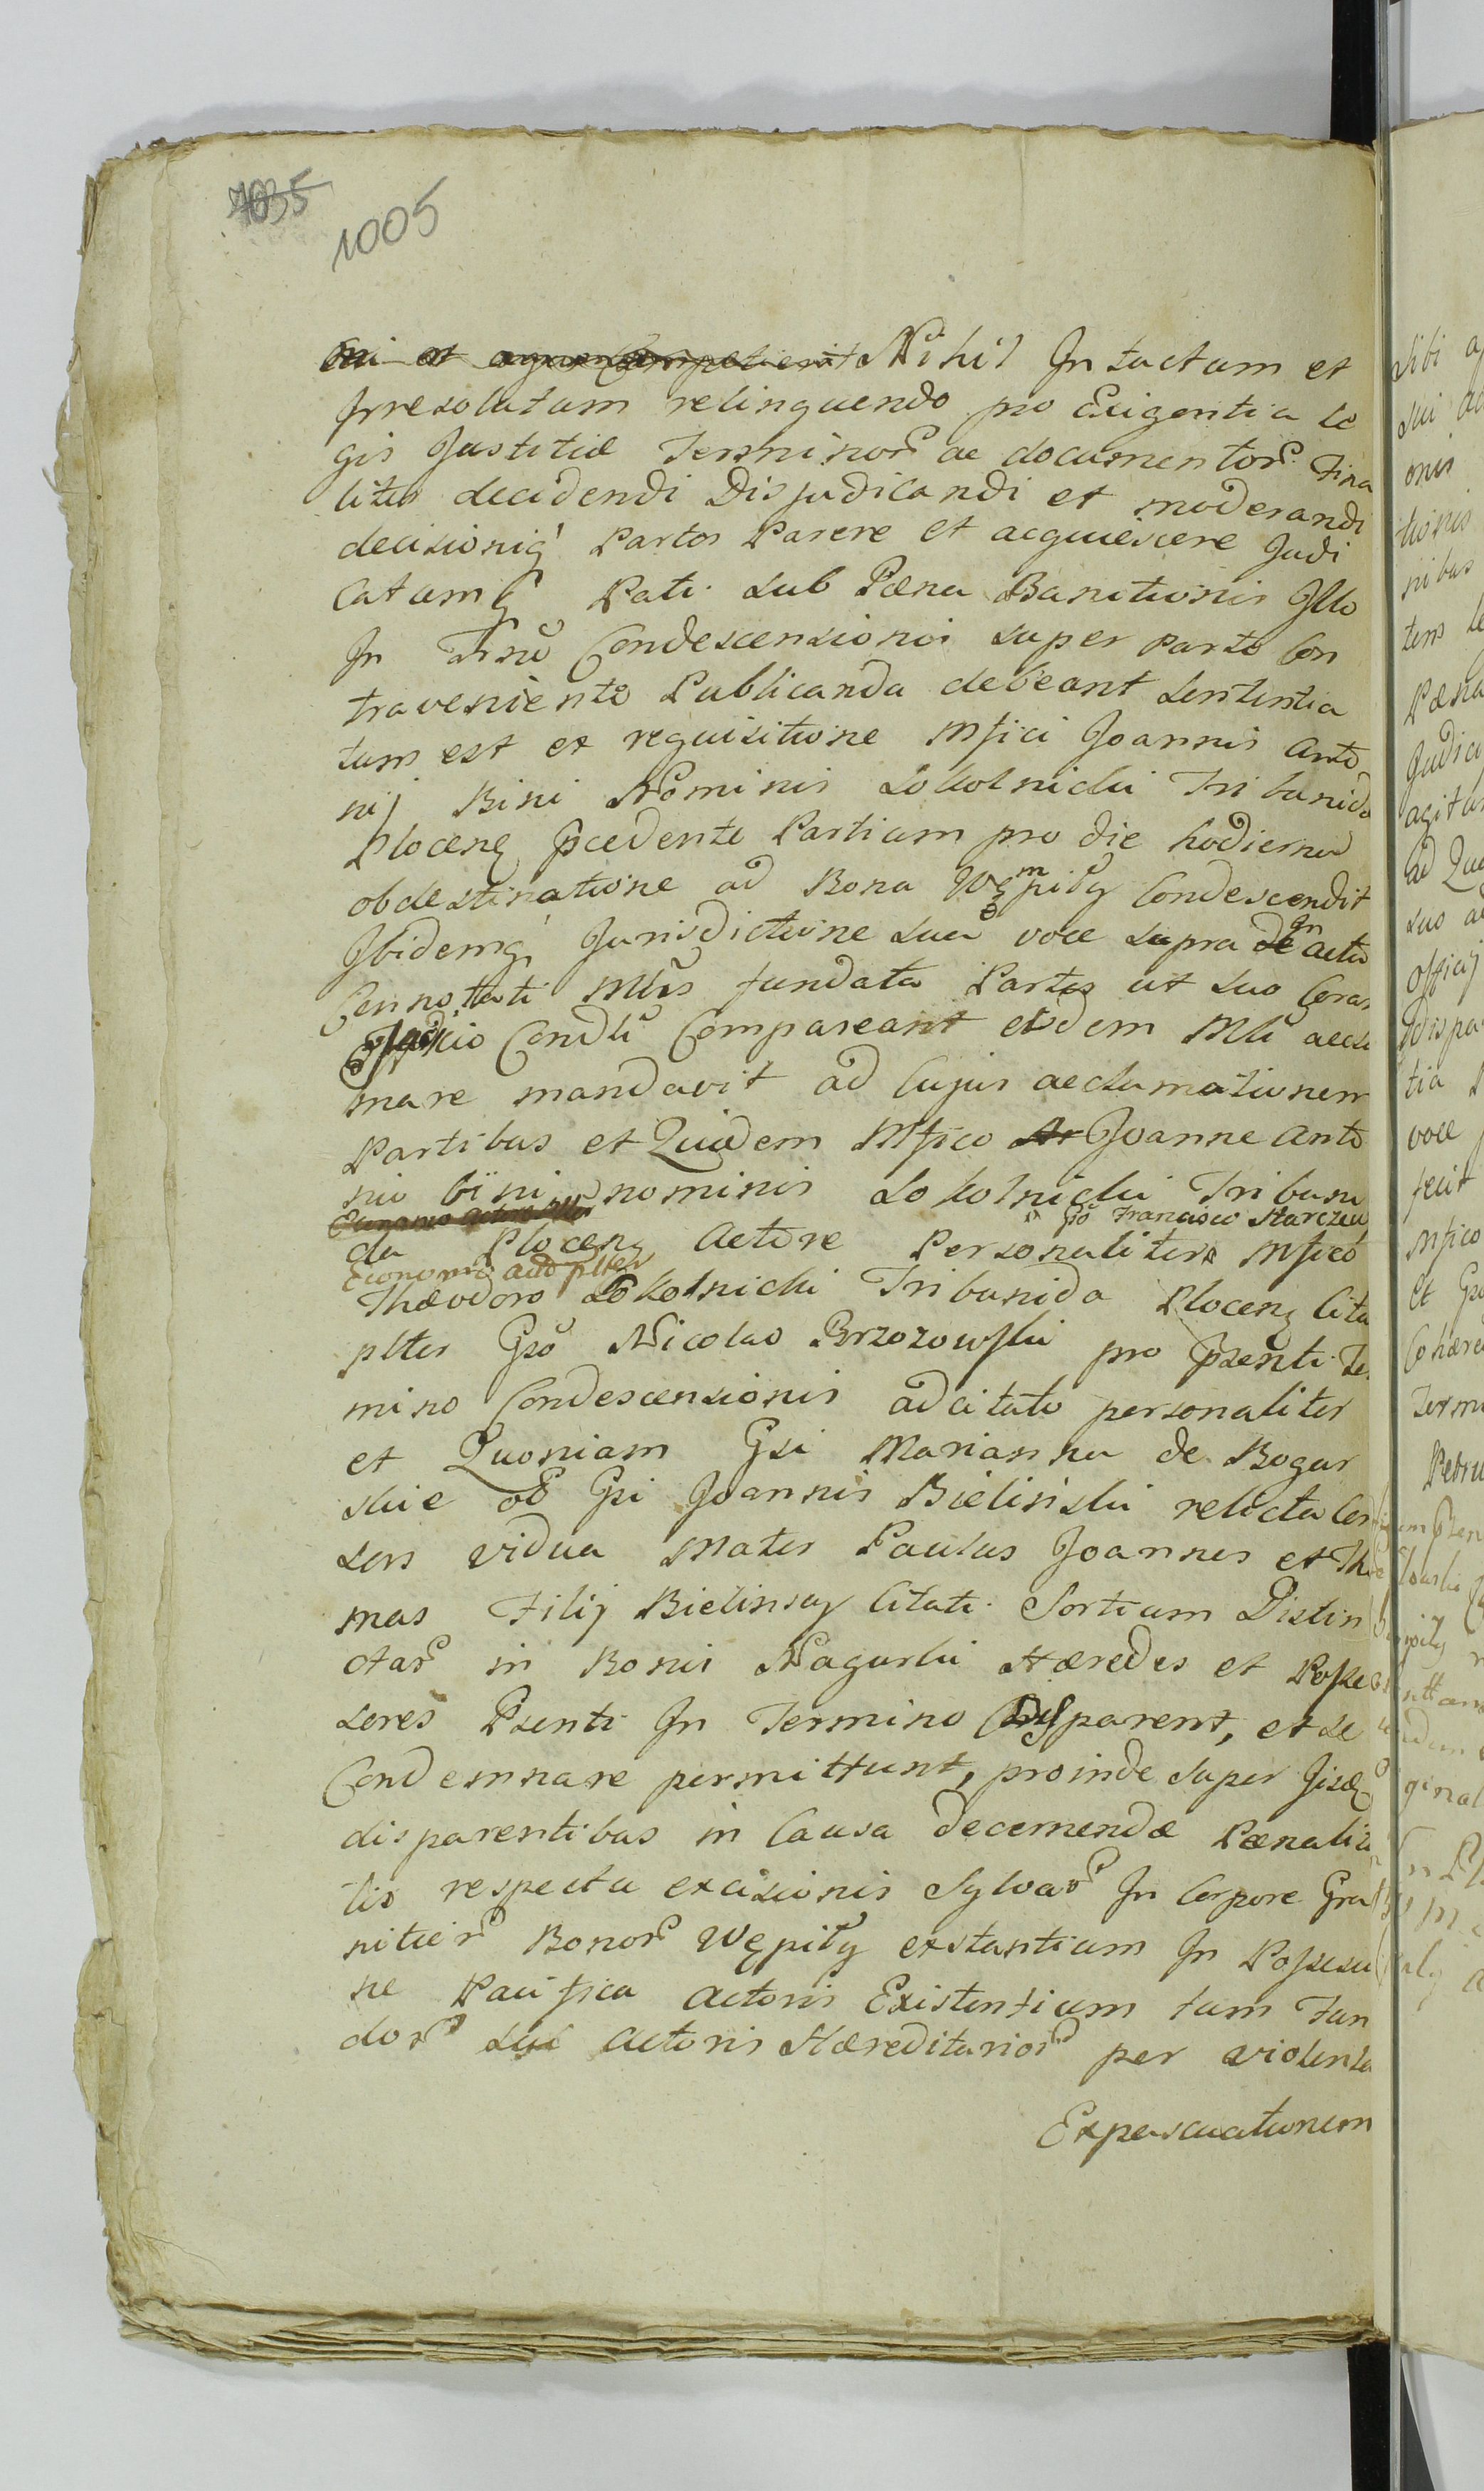 7035
1005
Nihil Intactum et
Irresolutum relinquendo pro Exigentia Le
gis Justitiæ Terminor ac documentor Fina
liter decidendi Disjudicandi et moderandi
decisioniq Partes Parere et acquiescere Judi
catumq Pati sub Pæna Banitionis Illo
In Trno Condescensionis super parte Con
traveniente Publicanda debeant Sententia
tum est et requisitione Mfici Joannis Anto
nij Bini Nominis Sokolnicki Tribunida
Plocenq Pcedente Partium pro die hodierna
obdestinatione ad Bona Węmpiły Condescendit
Ibidemq Jurisdictione sua voce supra In actu
Connotati Mlis fundata Partes ut suo Coram
Officio Condli Compareant eidem Mli accla
mare mandavit ad Cujus acclamationem
Partibus et Quidem Mfico Joanne Anto
nio bini nominis Sokolnicki Tribuni
Gso Francisco Starczew
da Plocenq Actore Personaliter Mfico
Economo plter
Theodoro Sokolnicki Tribunida Plocenq Cita
plter Gso Nicolao Brzozowski pro Psenti Ter
mino Condescensionis adcitato personaliter
et Quoniam Gsi Marianna de Bogur
skie ol Gsi Joannis Bielinski relicta Con
sors vidua Mater Paulus Joannes et Tho
mas Filij Bielinscy Citati Sortium Distin
ctar in Bonis Nagurki Hæredes et Posse
sores Psenti In Termino Disparent, et se
Condemnare permittunt, proinde super Iisdq
disparentibus in Causa decernendæ Pænalita
tis respectu excisionis Sylvar In Corpore Gra
nitier Bonor Wępiły extantium In Possessio
ne Pacifica Actoris Existentium tum Fun
dor sui Actoris Hæreditarior per violenta
Expascuationem